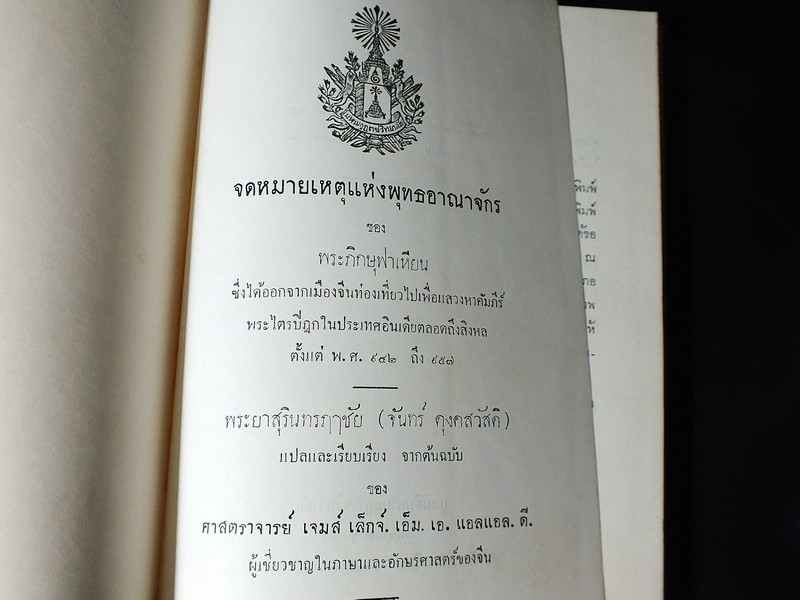 มหามกุฏราชวิทยาลัย
จดหมายเหตุแห่งพุทธอาณาจักร
ของ
พระภิกษุฟาเหียน
ซึ่งได้ออกจากเมืองจีนท่องเที่ยวไปเพื่อแสวงหาคัมภีร์
พระไตรปิฎกในประเทศอินเดียตลอดถึงสิงหล
ตั้งแต่ พ. ศ. ๙๔๒ ถึง ๙๕๗
พระยาสุรินทรฦๅชัย (จันทร์ ตุงคสวัสดิ)
แปลและเรียบเรียง จากต้นฉบับ
ของ
ศาสตราจารย์ เจมส์ เล็กจ์. เอ็ม. เอ. แอลแอล. ดี.
ผู้เชี่ยวชาญในภาษาและอักษรศาสตร์ของจีน